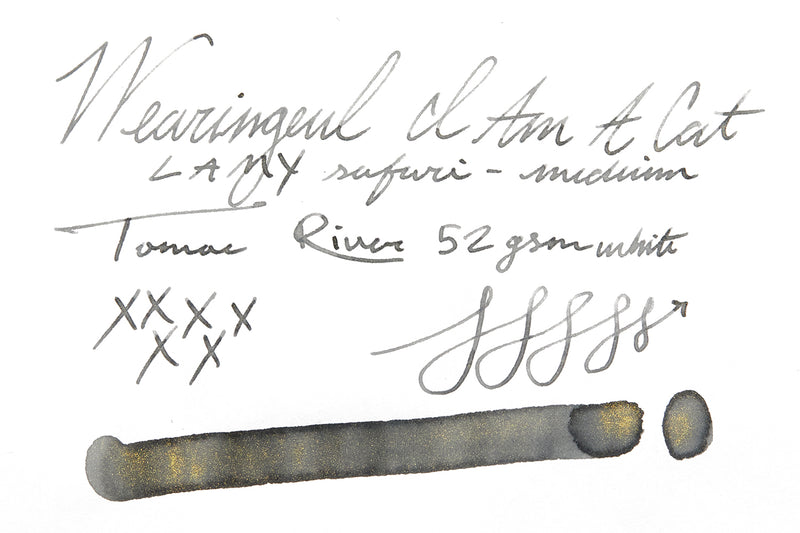 Wearingeul I Am A Cat
LAMY safari - medium
Tomoe River 52 gsm white
XXXX
XX